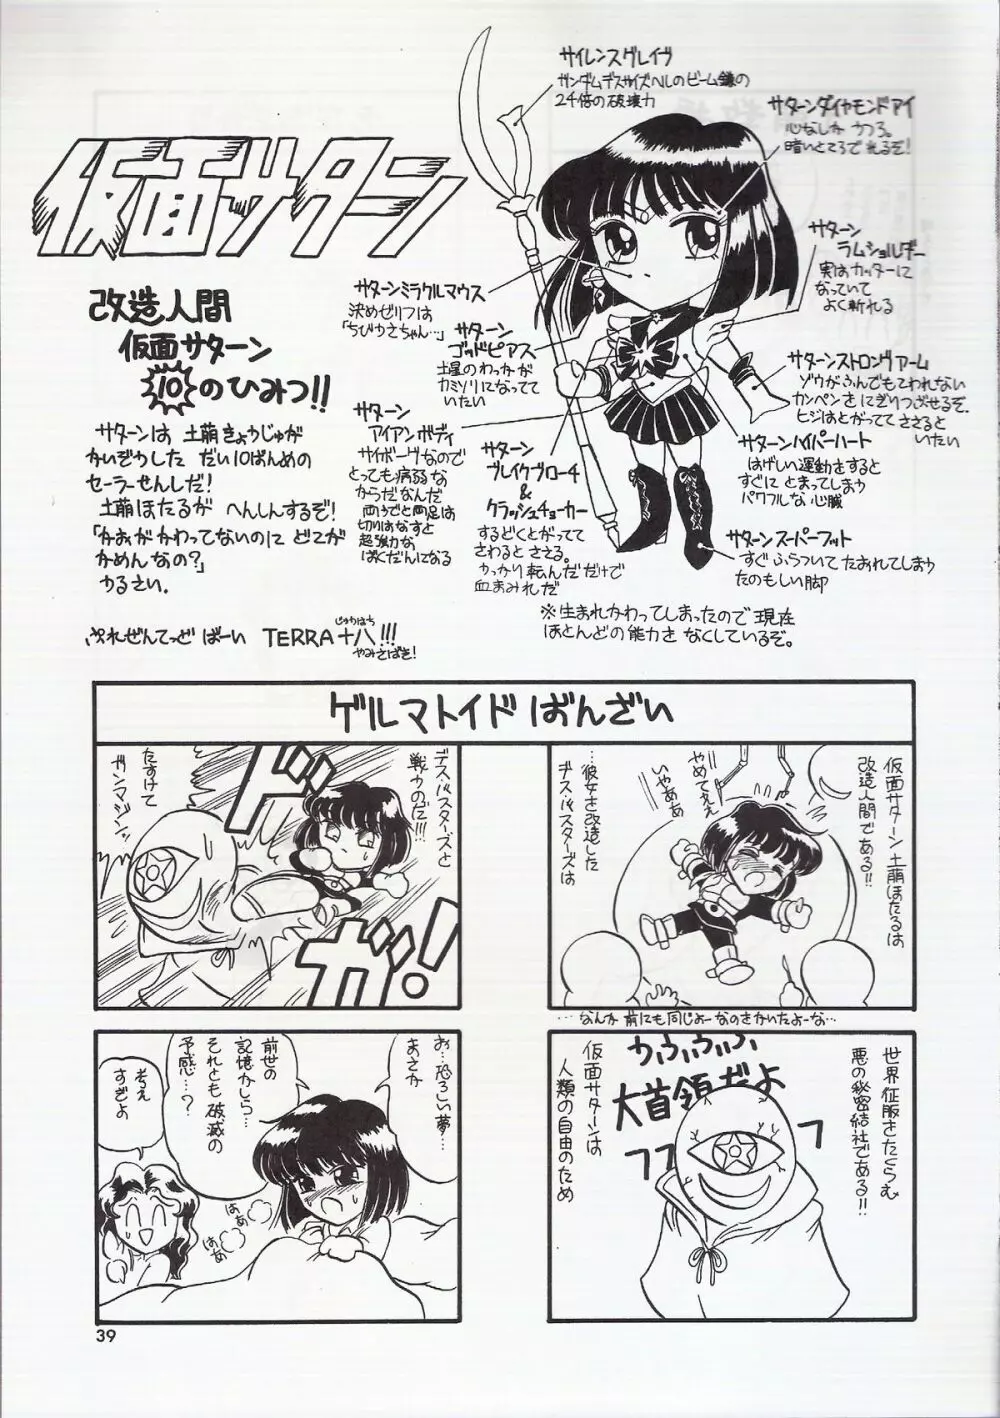 仮面サターン
改造人間
仮面サターン
10のひみつ!!
サターンは 土萠きょうじゅが
かいぞうした だい10ばんめの
セーラーせんしだ!
土萠ほたるが へんしんするぞ!
「かおが かわってないのに どこが
かめんなの?」
うるさい。
ぷれぜんてっど ばーい TERRA十八!!!
じゅうはち
やみさばき!
サイレンスグレイヴ
ガンダムデスサイズヘルのビーム鎌の
24倍の破壊力
サターンダイヤモンドアイ
心なしか うつろ。
暗いところで 光るぞ!
サターン
ラムショルダー
実はカッターに
なっていて
よく斬れる
サターンミラクルマウス
決めゼリフは
「ちびうさちゃん…」
サターン
ゴッドピアス
土星のわっかが
カミソリになってて
いたい
サターンストロングアーム
ゾウがふんでもこわれない
カンペンさ にぎりつぶせるぞ。
ヒジはとがってて ささると
いたい
サターン
アイアンボディ
サイボーグなので
とっても病弱な
からだなんだ
両うでと両足は
切りはなすと
超強力な
ばくだんになる
サターン
ブレイクブローチ
&
クラッシュチョーカー
するどくとがってて
さわると ささる。
うっかり転んだだけで
血まみれだ
サターンハイパーハート
はげしい運動をすると
すぐに とまってしまう
パワフルな 心臓
サターンスーパーフット
すぐ ふらついて たおれてしまう
たのもしい脚
※生まれかわってしまったので 現在
ほとんどの能力を なくしているぞ。
ゲルマトイド ばんざい
仮面サターン 土萠ほたるは
改造人間である!!
やめてぇぇ
いやああ
…彼女を改造した
デス・バスターズは
…なんか 前にも同じよーなのをかいたよーな…
世界征服をたくらむ
悪の秘密結社である!!
うふふふふ
大首領だよ
フフ
フ
仮面サターンは
人類の自由のため
デス・バスターズと
戦うのだ!!!
ドドッ
ガガ!
たすけて
ガンマジンッ
お…恐ろしい夢…
まさか
前世の
記憶かしら…
それとも 破滅の
予感…?
はぁ
はぁ
考え
すぎよ
39